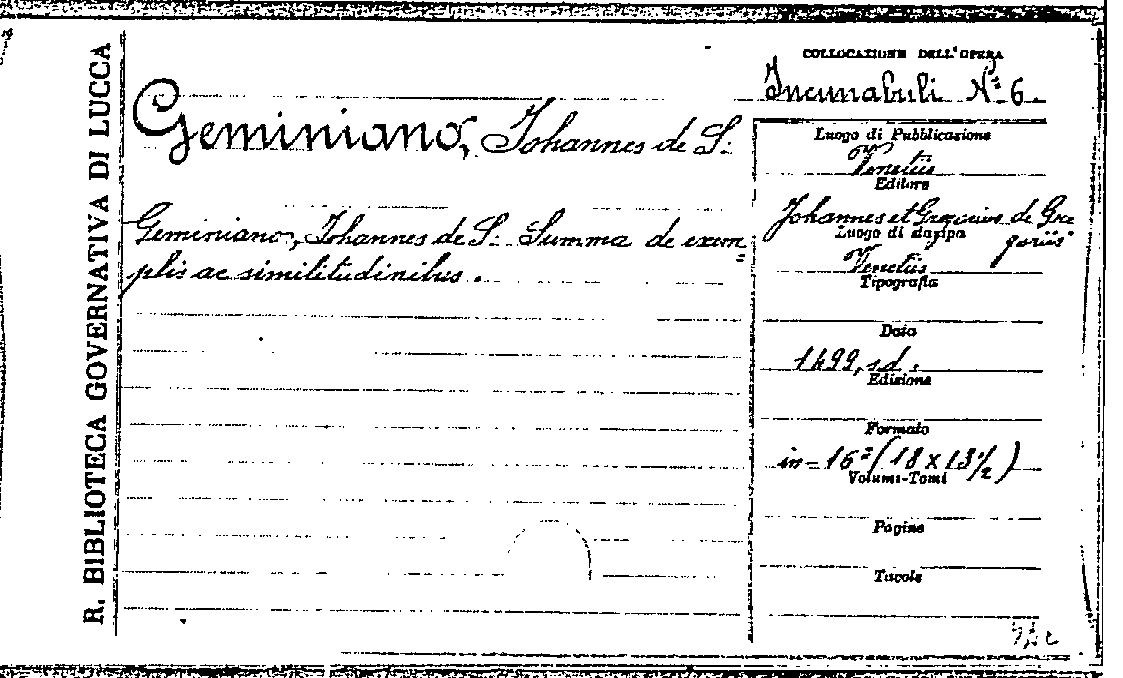 R. BIBLIOTECA GOVERNATIVA DI LUCCA
Geminiano, Iohannes de S.
Geminiano, Iohannes de S. Summa de exem=
plis ac similitudinibus.
COLLOCAZIONE DELL'OPERA
Incunabuli Nº 6.
Luogo di Pubblicazione
Venetiis
Editore
Johannes et Gregorius de Gre
goriis
Luogo di stampa
Venetiis
Tipografia
Data
1499, s.d.
Edizione
Formato
in-16º (18 x 13½)
Volumi-Tomi
Pagine
Tavole